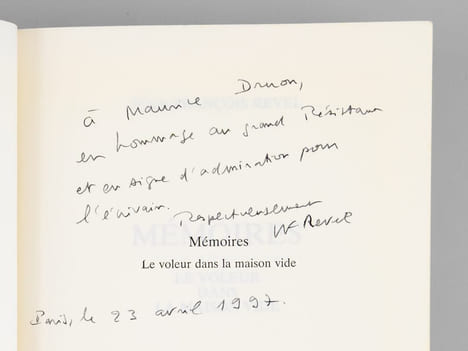 à Maurice Druon,
en hommage au grand Résistant
et en signe d'admiration pour
l'écrivain.
Respectueusement
JF Revel
Mémoires
Le voleur dans la maison vide
Paris, le 23 avril 1997.